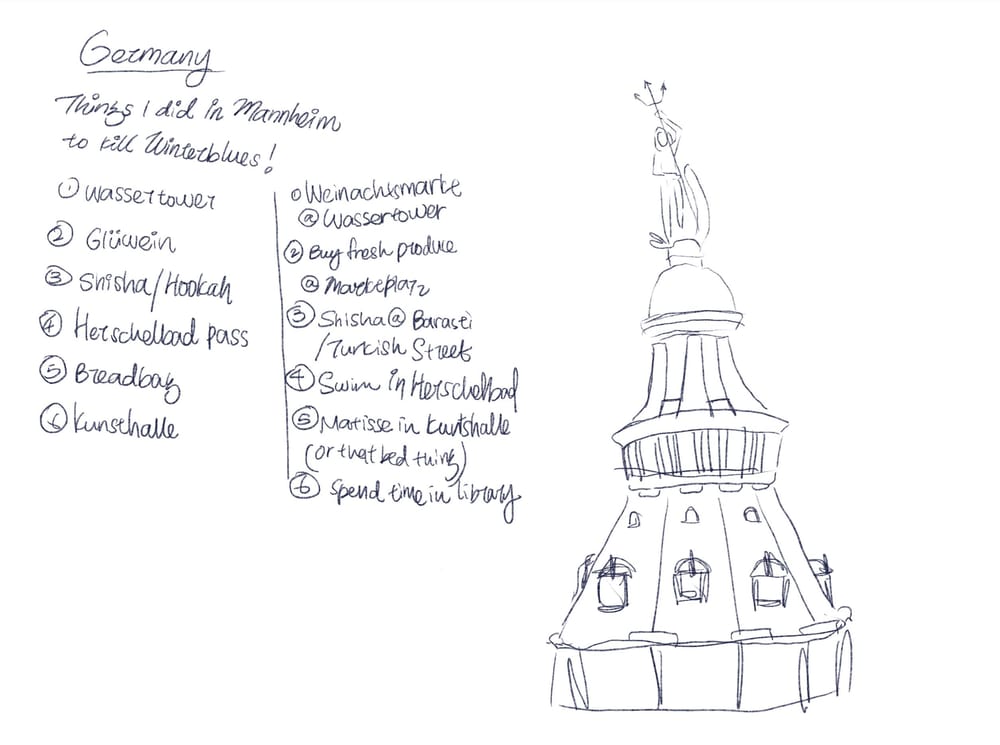 Germany
Things I did in Mannheim
to kill Winterblues!
① Wassertower
② Glüwein
③ Shisha/Hookah
④ Herschelbad pass
⑤ Breadbag
⑥ Kunsthalle
o Weinachtsmarke
@ Wassertower
② Buy fresh produce
@ Markeplatz
③ Shisha @ Barasti
/Turkish Street
④ Swim in Herschelbad
⑤ Matisse in Kuntshalle
(or that bed thing)
⑥ Spend time in library